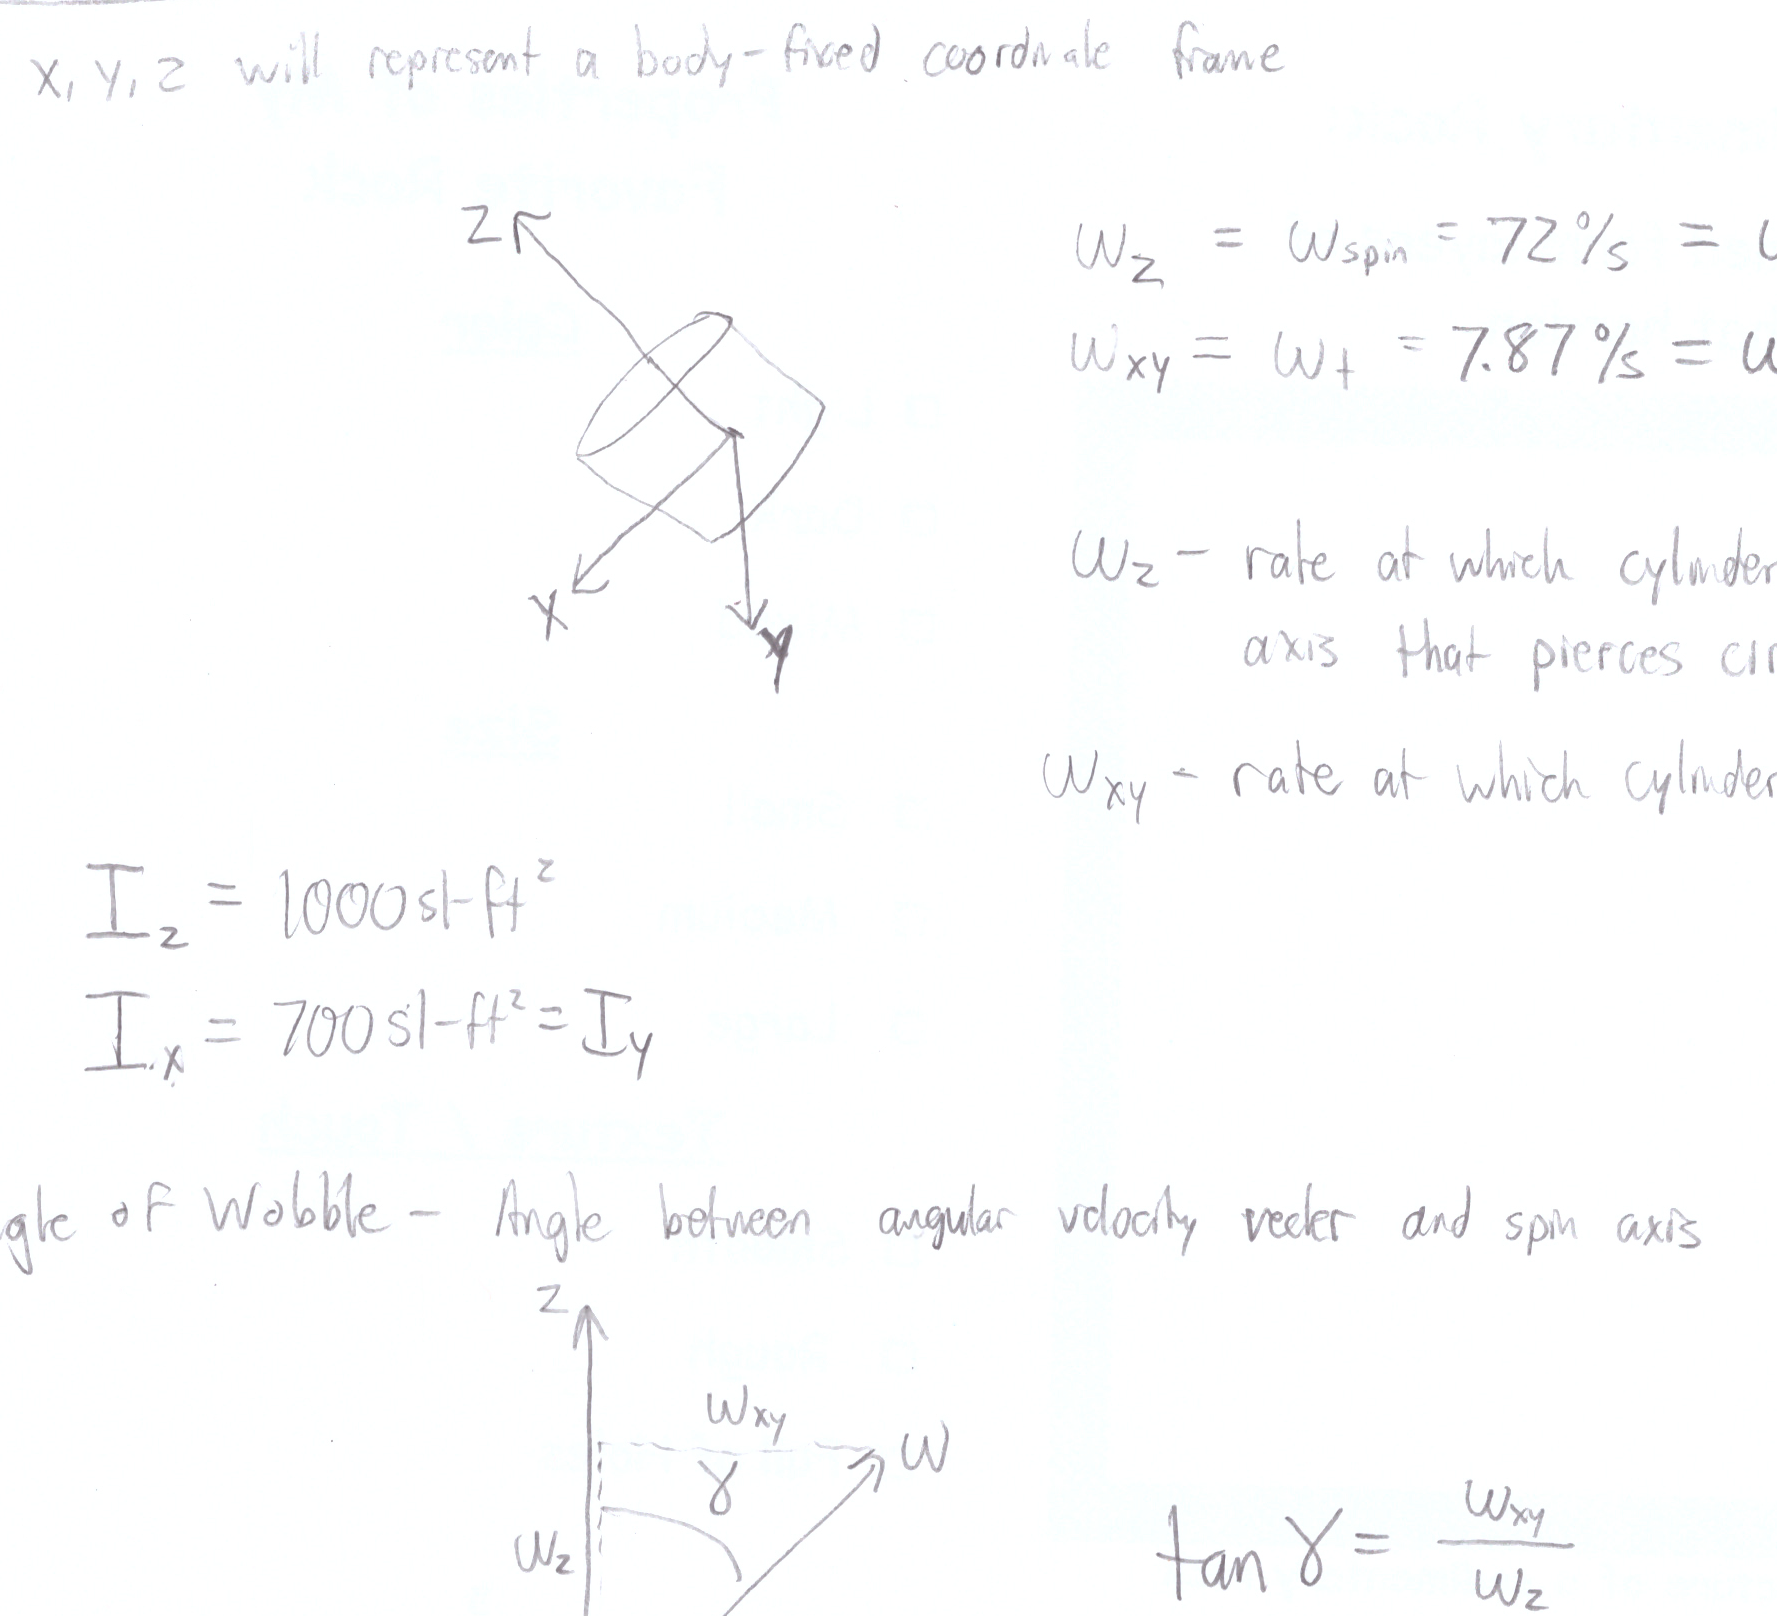 x, y, z will represent a body-fixed coordinate frame
z
x
y
ω_z = ω_spin = 72°/s =
ω_xy = ω_t = 7.87°/s =
ω_z - rate at which cylinder
axis that pierces cir
ω_xy - rate at which cylinder
I_z = 1000 sl-ft²
I_x = 700 sl-ft² = I_y
gle of Wobble - Angle between angular velocity vector and spin axis
z
ω_xy
ω
γ
ω_z
tan γ = ω_xy / ω_z